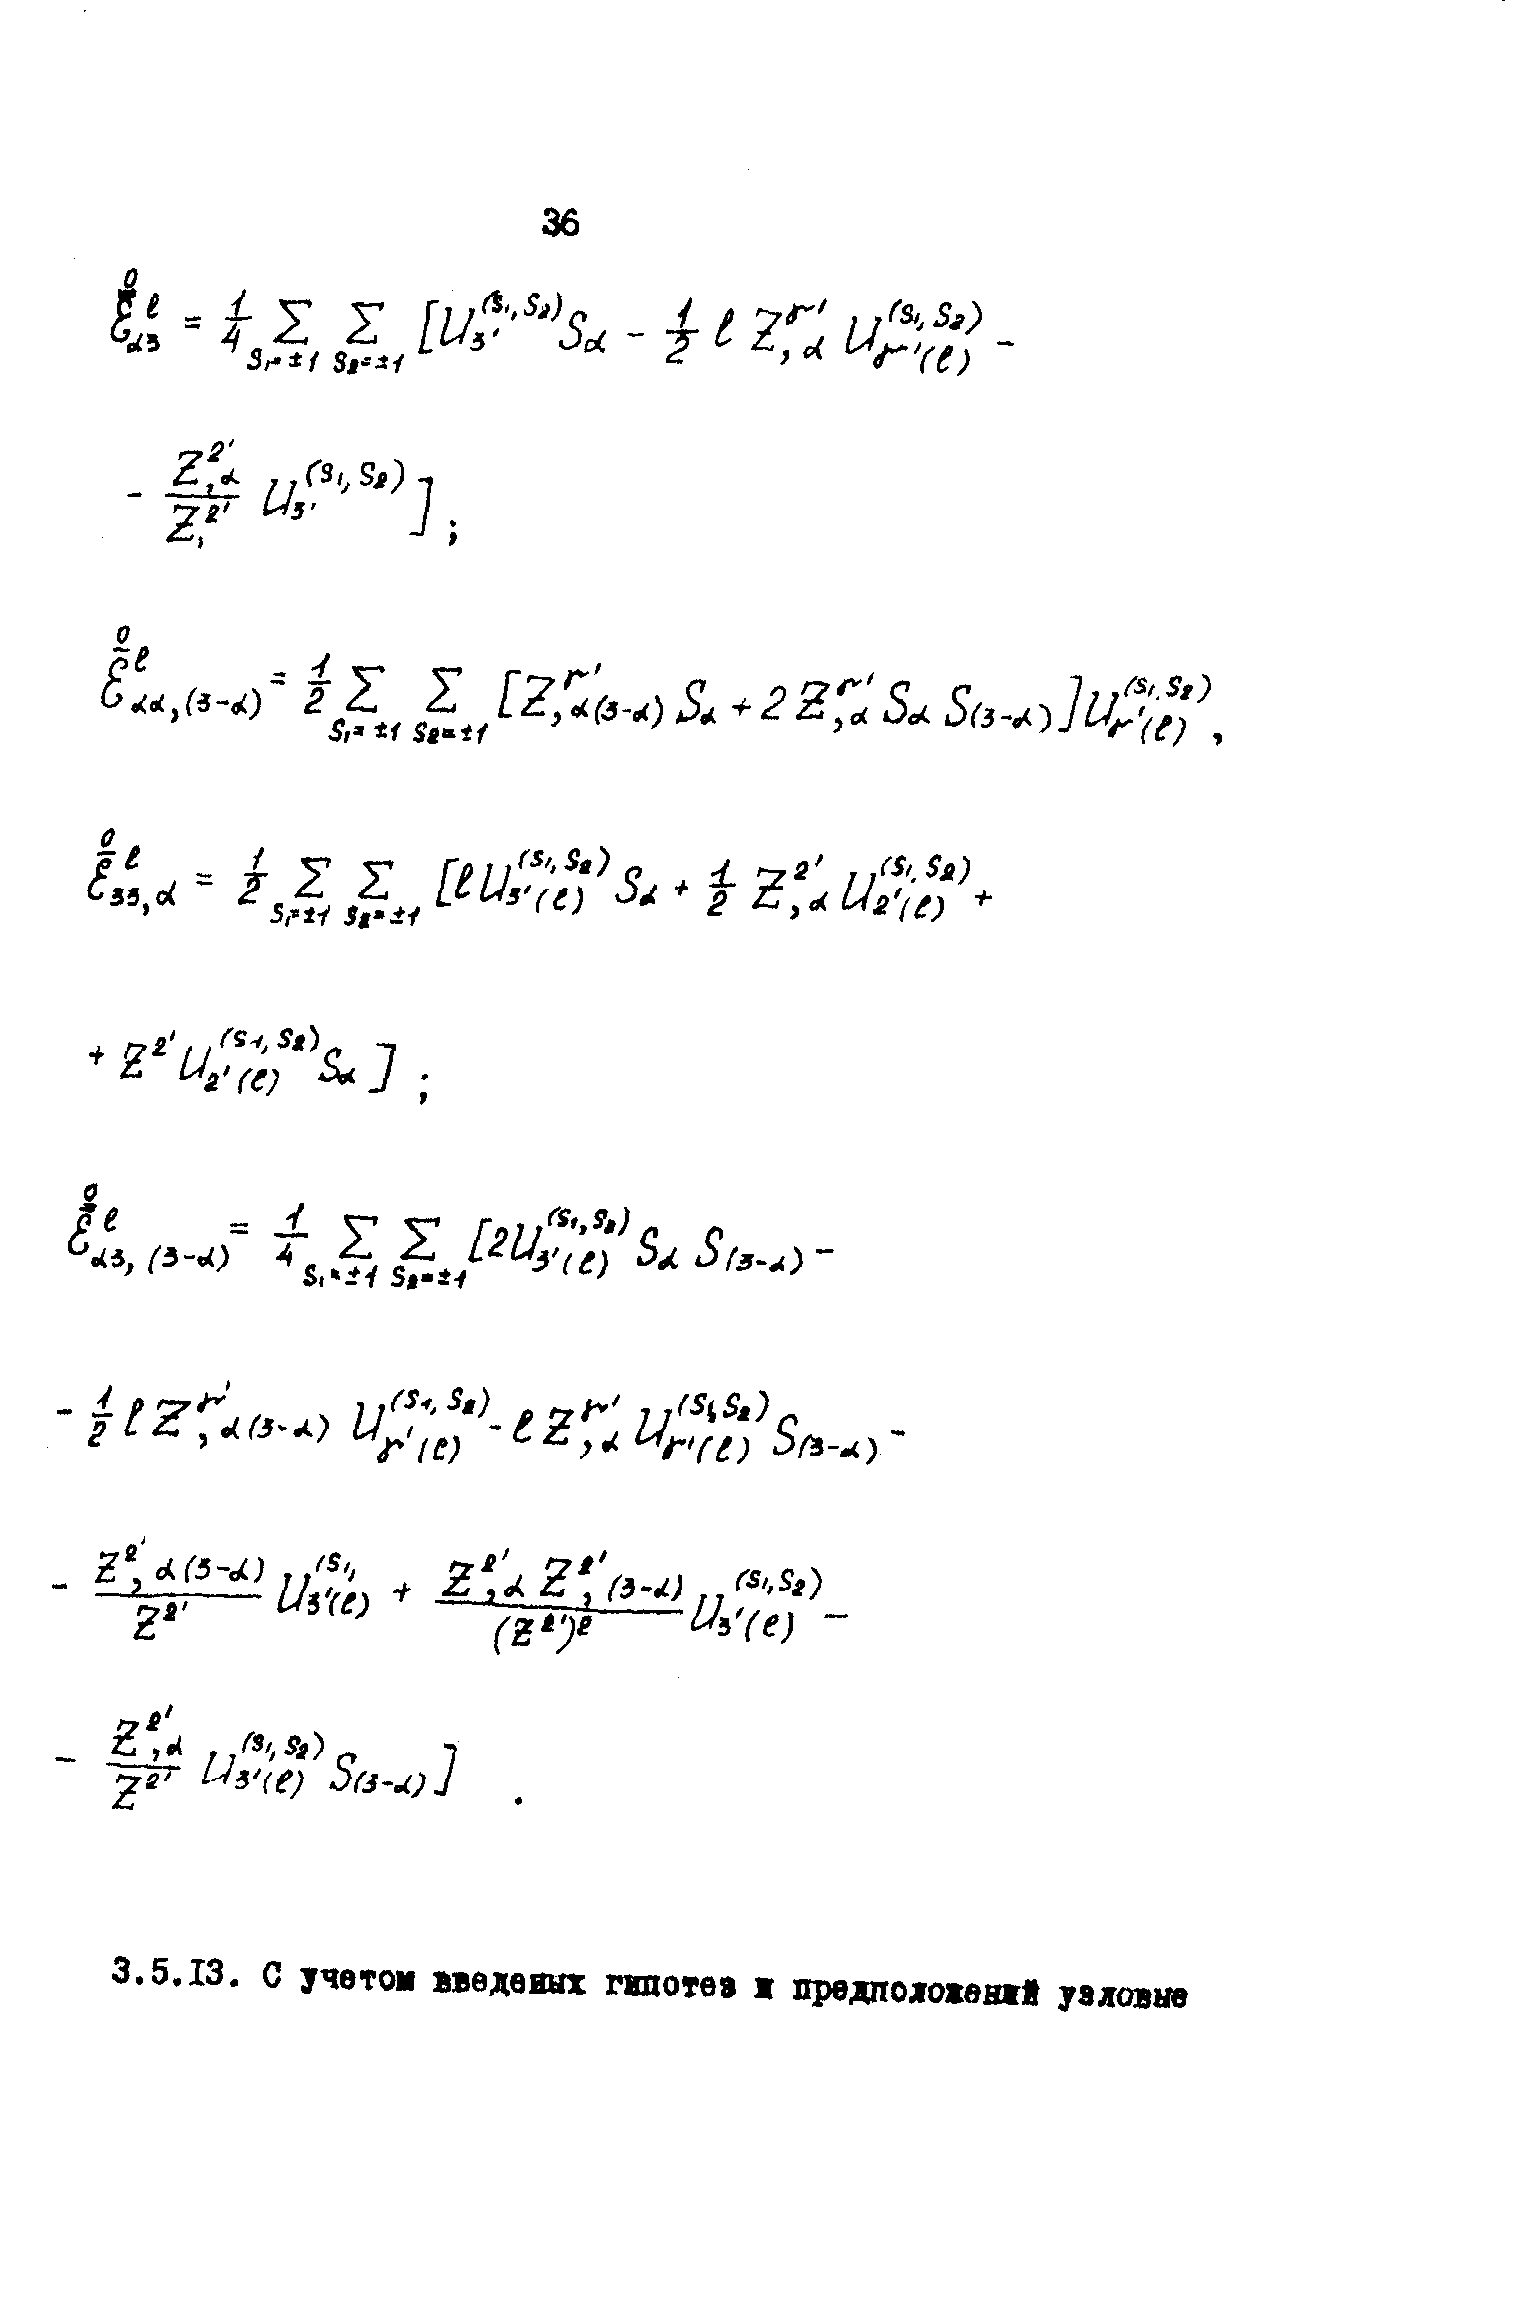 36
ε̊̄^ℓ_{α3} = 1/4 Σ_{S₁=±1} Σ_{S₂=±1} [U_{3'}^{(S₁,S₂)} S_α - 1/2 ℓ Z^{γ'}_{,α} U_{γ'(ℓ)}^{(S₁,S₂)} -
- Z^{2'}_{,α} / Z^{2'}_{,} U_{3'}^{(S₁,S₂)} ] ;
ε̊̄^ℓ_{αα,(3-α)} = 1/2 Σ_{S₁=±1} Σ_{S₂=±1} [Z^{γ'}_{,α(3-α)} S_α + 2 Z^{γ'}_{,α} S_α S_{(3-α)}] U_{γ'(ℓ)}^{(S₁,S₂)} ,
ε̊̄^ℓ_{33,α} = 1/2 Σ_{S₁=±1} Σ_{S₂=±1} [ℓ U_{3'(ℓ)}^{(S₁,S₂)} S_α + 1/2 Z^{2'}_{,α} U_{2'(ℓ)}^{(S₁,S₂)} +
+ Z^{2'} U_{2'(ℓ)}^{(S₁,S₂)} S_α ] ;
ε̊̄^ℓ_{α3,(3-α)} = 1/4 Σ_{S₁=±1} Σ_{S₂=±1} [2U_{3'(ℓ)}^{(S₁,S₂)} S_α S_{(3-α)} -
- 1/2 ℓ Z^{γ'}_{,α(3-α)} U_{γ'(ℓ)}^{(S₁,S₂)} - ℓ Z^{γ'}_{,α} U_{γ'(ℓ)}^{(S₁,S₂)} S_{(3-α)} -
- Z^{2'}_{,α(3-α)} / Z^{2'} U_{3'(ℓ)}^{(S₁,} + Z^{2'}_{,α} Z^{2'}_{,(3-α)} / (Z^{2'})^2 U_{3'(ℓ)}^{(S₁,S₂)} -
- Z^{2'}_{,α} / Z^{2'} U_{3'(ℓ)}^{(S₁,S₂)} S_{(3-α)} ] .
3.5.13. С учетом введеных гипотез и предположений узловые